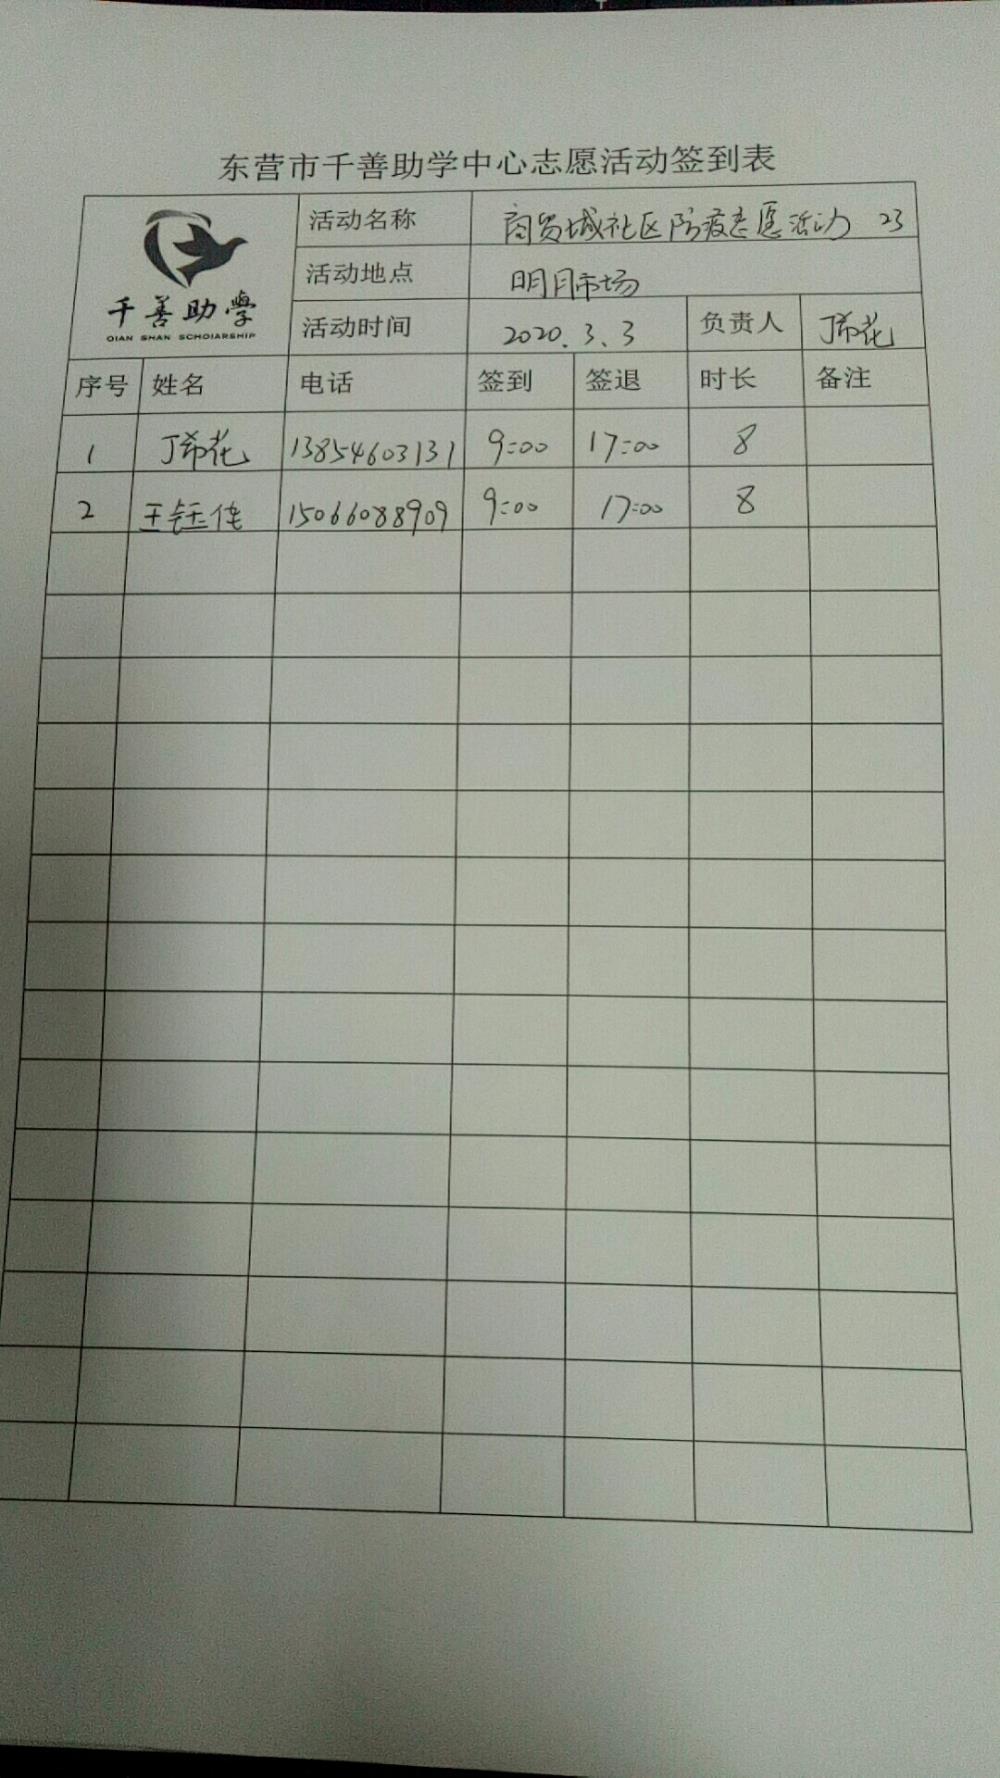 东营市千善助学中心志愿活动签到表
千善助學
QIAN SHAN SCHOIARSHIP
活动名称 商贸城社区防疫志愿活动 23
活动地点 明月市场
活动时间 2020.3.3 负责人 丁希花
序号 姓名 电话 签到 签退 时长 备注
1 丁希花 13854603131 9:00 17:00 8
2 王钰佳 15066088909 9:00 17:00 8